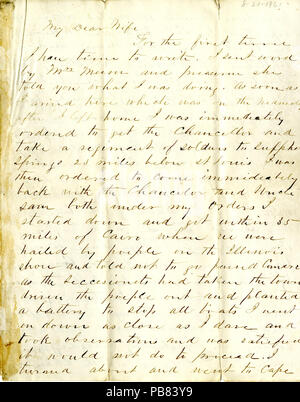 8-21-1861
My Dear Wife
For the first time
I have time to write. I sent word
by Mrs Mason and presume she
told you what I was doing. As soon as
I arived here which was on the
after I left home I was immediately
ordered to get the Chancellor and
take a regiment of soldiers to Sulpher
Springs 23 miles below St Louis I was
then ordered to come immideately
back with the Chancelor and Uncle
Sam both under my orders I
started down and got within 35
miles of Cairo when we were
hailed by people on the Illinois
shore and told not to go
as the seccessionists had taken the town
driven the people out and planted
a battery to stop all boats I went
on down as close as I dare and
took observations and was satisfied
it would not do to procead. I
turned about and went to Cape
alamy
Image ID: PB83Y9
www.alamy.com